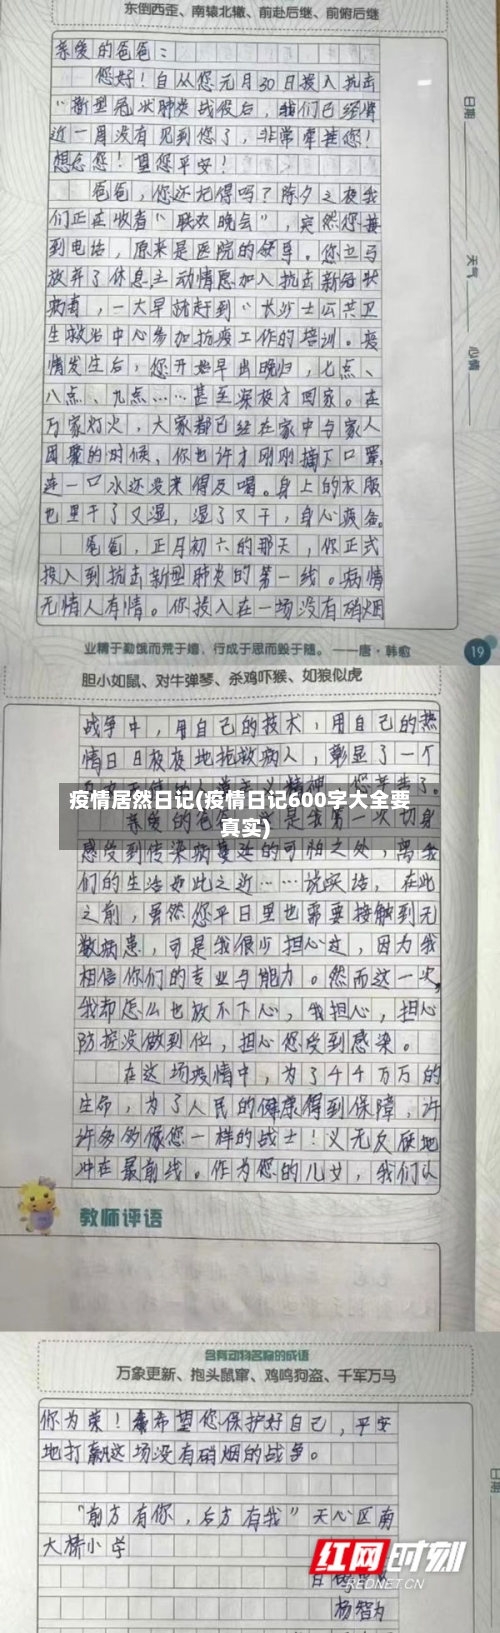 东倒西歪、南辕北辙、前赴后继、前俯后继
亲爱的爸爸:
您好!自从您元月30日投入抗击
"新型冠状肺炎战役后,我们已经将
近一周没有见到您了,非常牵挂您!
想念您!望您平安!
爸爸,您还记得吗?除夕之夜我
们正在收看"联欢晚会",突然您接
到电话,原来是医院的领导。您立马
放弃了休息主动情愿加入抗击新冠状
病毒,一大早就赶到"长沙士公共卫
生救治中心参加抗疫工作的培训。疫
情发生后,您开始早出晚归,七点、
八点、九点……甚至深夜才回家。在
万家灯火,大家都已经在家中与家人
团聚的时候,你也许才刚刚摘下口罩,
连一口水还没来得及喝。身上的衣服
也里干了又湿,湿了又干,身心疲惫。
爸爸,正月初六的那天,你正式
投入到抗击新型肺炎的第一线。病情
无情人有情。你投入在一场没有硝烟
业精于勤
而荒于嬉,行成于思而毁于随。——唐·韩愈
19
日期
天气
心情
胆小如鼠、对牛弹琴、杀鸡吓猴、如狼似虎
战争中,用自己的技术,用自己的热
情日日夜夜地抢救病人,彰显了一个
精神。您辛苦了。
疫情居然日记(疫情日记600字大全要
真实)
亲爱的爸
是我第一次切身
感受到传染病蔓延的可怕之处,离我
们的生活如此之近……说实话,在此
之前,虽然您平日里也需要接触到无
数病患,可是我很少担心过,因为我
相信你们的专业与能力。然而这一次,
我却怎么也放不下心,我担心,担心
防控没做到位,担心您受到感染。
在这场疫情中,为了44万万的
生命,为了人民的健康得到保障,许
许多多像您一样的战士!义无反顾地
冲在最前线。作为您的儿女,我们以
教师评语
含有动物名称的成语
万象更新、抱头鼠窜、鸡鸣狗盗、千军万马
你为荣!希望您保护好自己,平安
地打赢这场没有硝烟的战争。
"前方有你,后方有我"天心区南
大桥小学
红网时刻
REDNET.CN
杨智为
日期